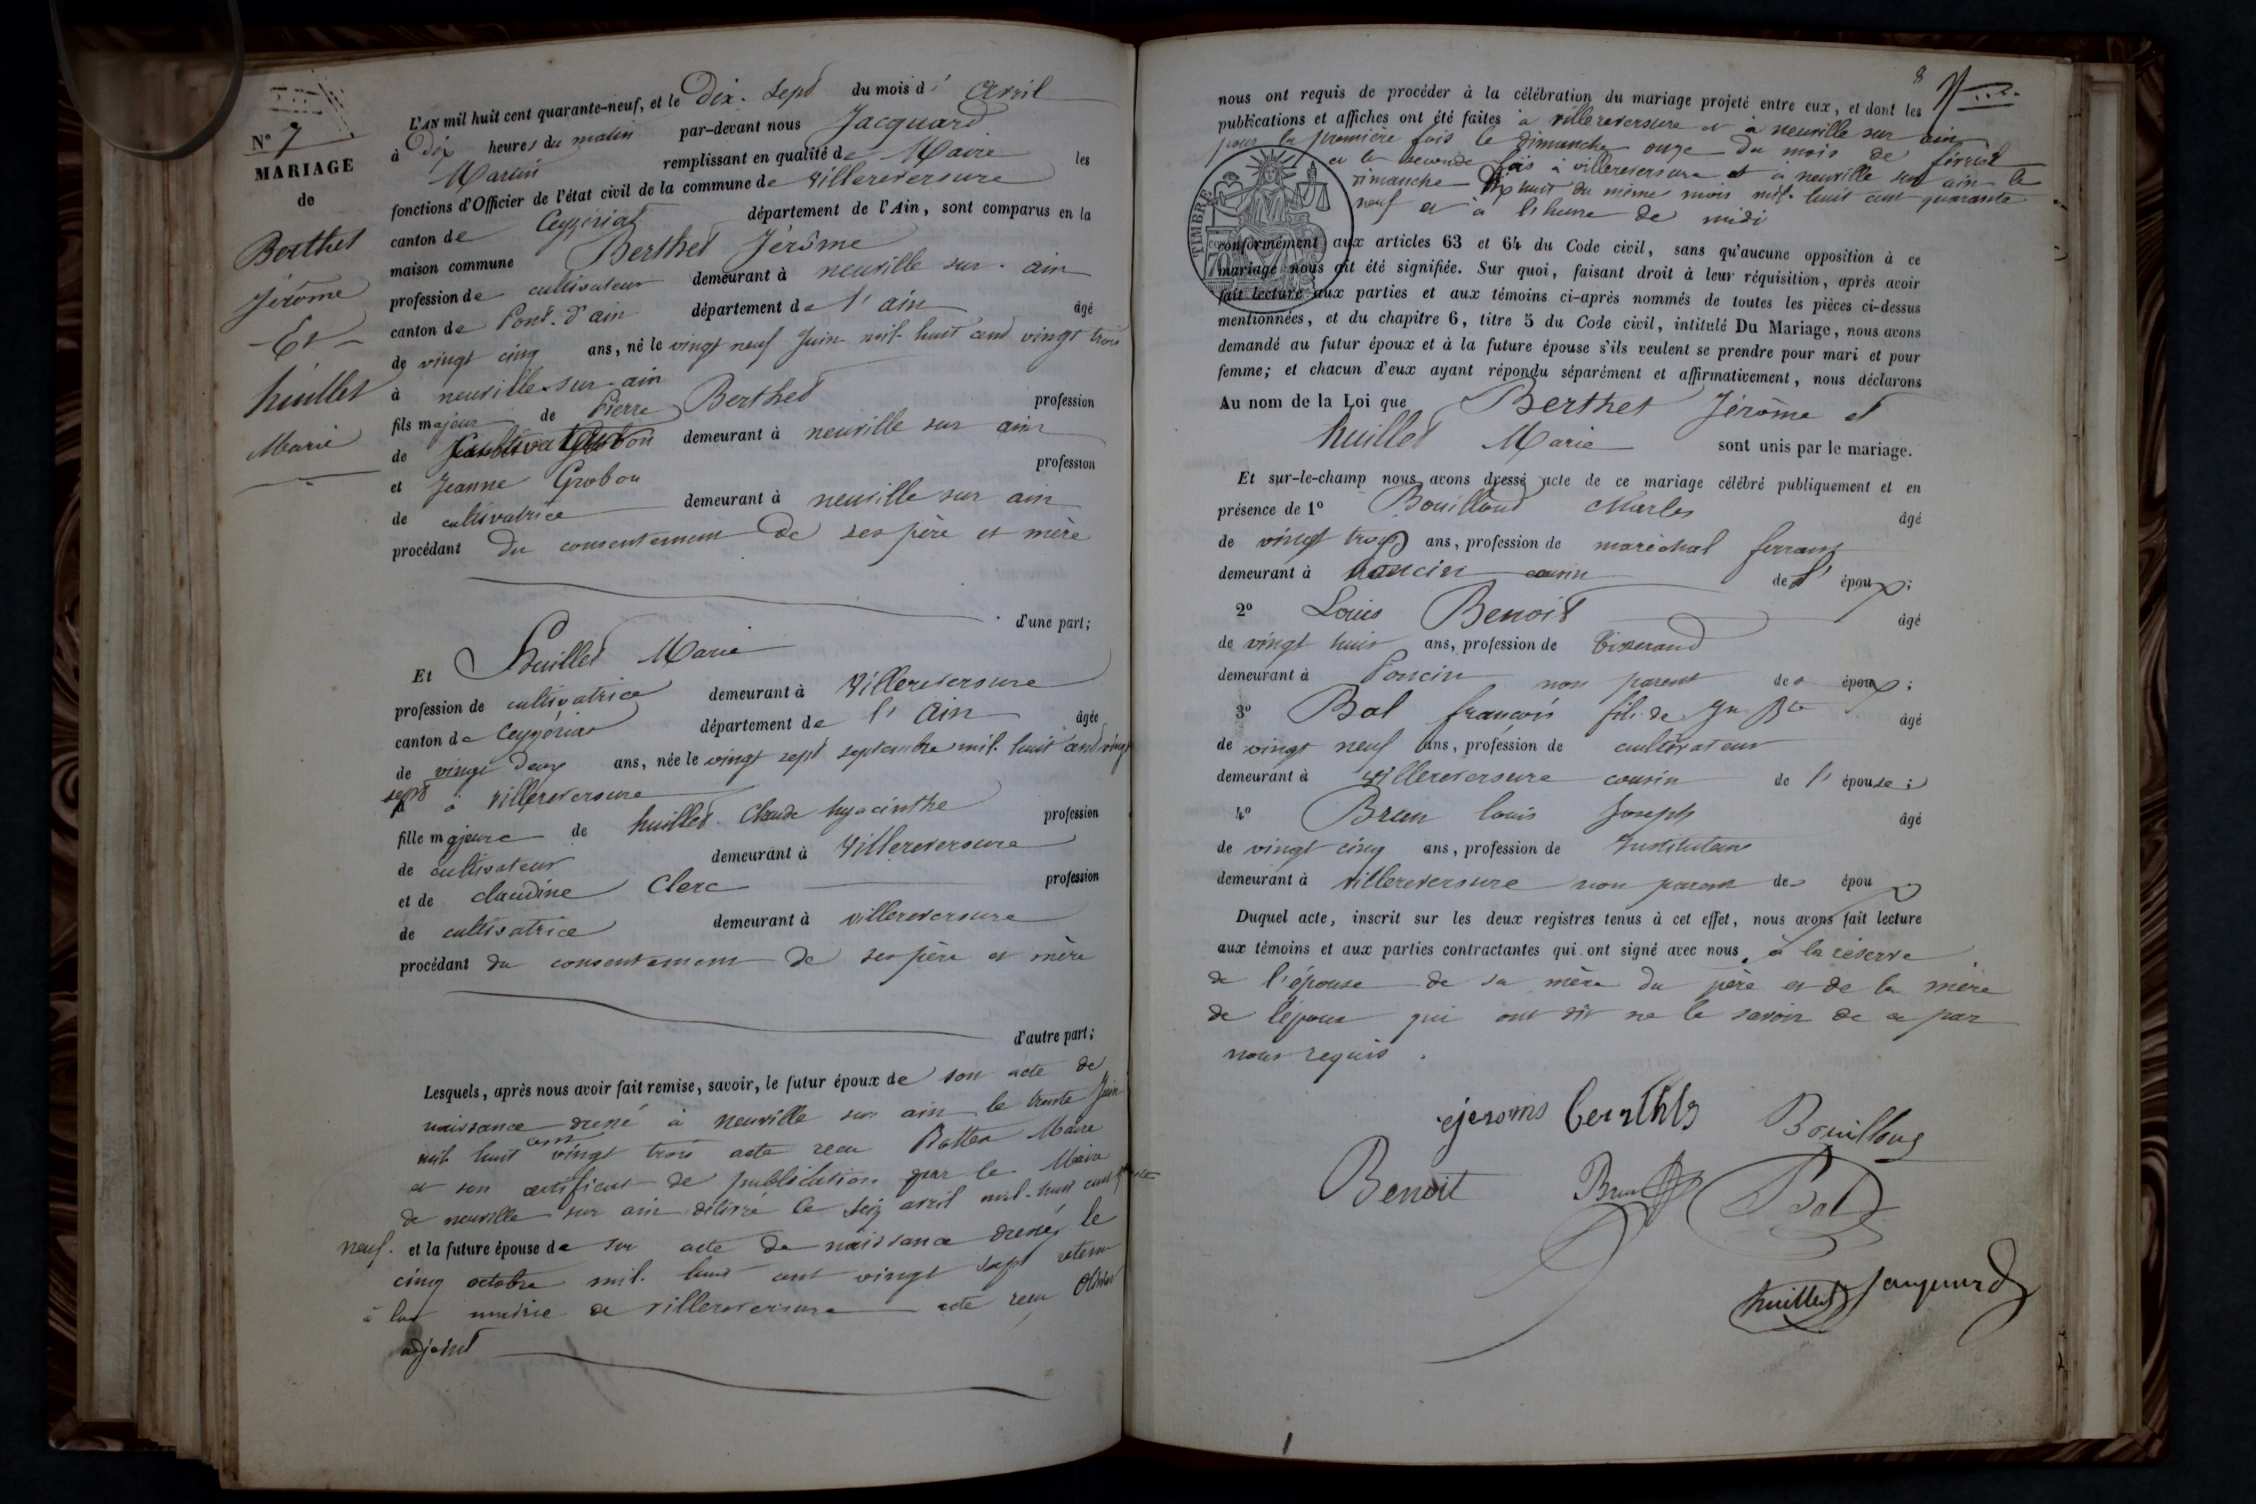 N° 7
MARIAGE
de
Berthet
Jérôme
Et
huillet
Marie
L'AN mil huit cent quarante-neuf, et le Dix-Sept du mois d' Avril
à Dix heures du matin par-devant nous Jacquard
Martin remplissant en qualité de Maire les
fonctions d'Officier de l'état civil de la commune de villereversure
canton de Ceyzériat département de l'Ain, sont comparus en la
maison commune Berthet Jérôme
profession de cultivateur demeurant à neuville sur ain
canton de Pont-d'ain département de l'ain âgé
de vingt cinq ans, né le vingt neuf Juin mil huit cent vingt trois
à neuville sur ain
fils majeur de Pierre Berthet profession
de cultivateur demeurant à neuville sur ain
et Jeanne Grobon profession
de cultivatrice demeurant à neuville sur ain
procédant du consentement de ses père et mère
d'une part;
Et huillet Marie
profession de cultivatrice demeurant à villereversure
canton de Ceyzériat département de l'Ain âgée
de vingt deux ans, née le vingt sept septembre mil huit cent vingt
sept à villereversure
fille majeure de huillet Claude hyacinthe profession
de cultivateur demeurant à villereversure
et de claudine Clerc profession
de cultivatrice demeurant à villereversure
procédant du consentement de ses père et mère
d'autre part;
Lesquels, après nous avoir fait remise, savoir, le futur époux de son acte de
naissance dressé à neuville sur ain le trente Juin
mil huit cent vingt trois acte reçu Maire
et son certificat de publication par le Maire
de neuville sur ain délivré le seiz avril mil huit cent quarante
neuf. et la future épouse de son acte de naissance dressé le
cinq octobre mil huit cent vingt sept retenu
à la mairie de villereversure acte reçu
adjoint
8
nous ont requis de procéder à la célébration du mariage projeté entre eux, et dont les
publications et affiches ont été faites à villereversure et à neuville sur ain
pour la première fois le dimanche onze du mois de février
et la seconde fois à villereversure et à neuville sur ain le
dimanche Dix huit du même mois mil huit cent quarante
neuf et à l'heure de midi
TIMBRE
conformément aux articles 63 et 64 du Code civil, sans qu'aucune opposition à ce
mariage nous ait été signifiée. Sur quoi, faisant droit à leur réquisition, après avoir
fait lecture aux parties et aux témoins ci-après nommés de toutes les pièces ci-dessus
mentionnées, et du chapitre 6, titre 5 du Code civil, intitulé Du Mariage, nous avons
demandé au futur époux et à la future épouse s'ils veulent se prendre pour mari et pour
femme; et chacun d'eux ayant répondu séparément et affirmativement, nous déclarons
Au nom de la Loi que Berthet Jérôme et
huillet Marie sont unis par le mariage.
Et sur-le-champ nous avons dressé acte de ce mariage célébré publiquement et en
présence de 1° Bouilloud Charles âgé
de vingt trois ans, profession de maréchal ferrant
demeurant à Poncin cousin de l' époux;
2° Louis Benoit âgé
de vingt huit ans, profession de tisserand
demeurant à Poncin non parent des époux;
3° Bal françois fils de Jn Bte âgé
de vingt neuf ans, profession de cultivateur
demeurant à villereversure cousin de l' épouse;
4° Brun louis Joseph âgé
de vingt cinq ans, profession de Instituteur
demeurant à villereversure non parent des époux
Duquel acte, inscrit sur les deux registres tenus à cet effet, nous avons fait lecture
aux témoins et aux parties contractantes qui ont signé avec nous, à la réserve
de l'épouse de sa mère du père et de la mère
de l'époux qui ont dit ne le savoir de ce par
nous requis.
Bouilloud
Benoit Brun Bal
huillet Jacquard